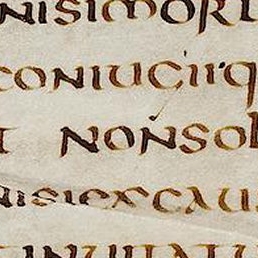 nisimort
coniuciiq
t nonsol
nisiexcau